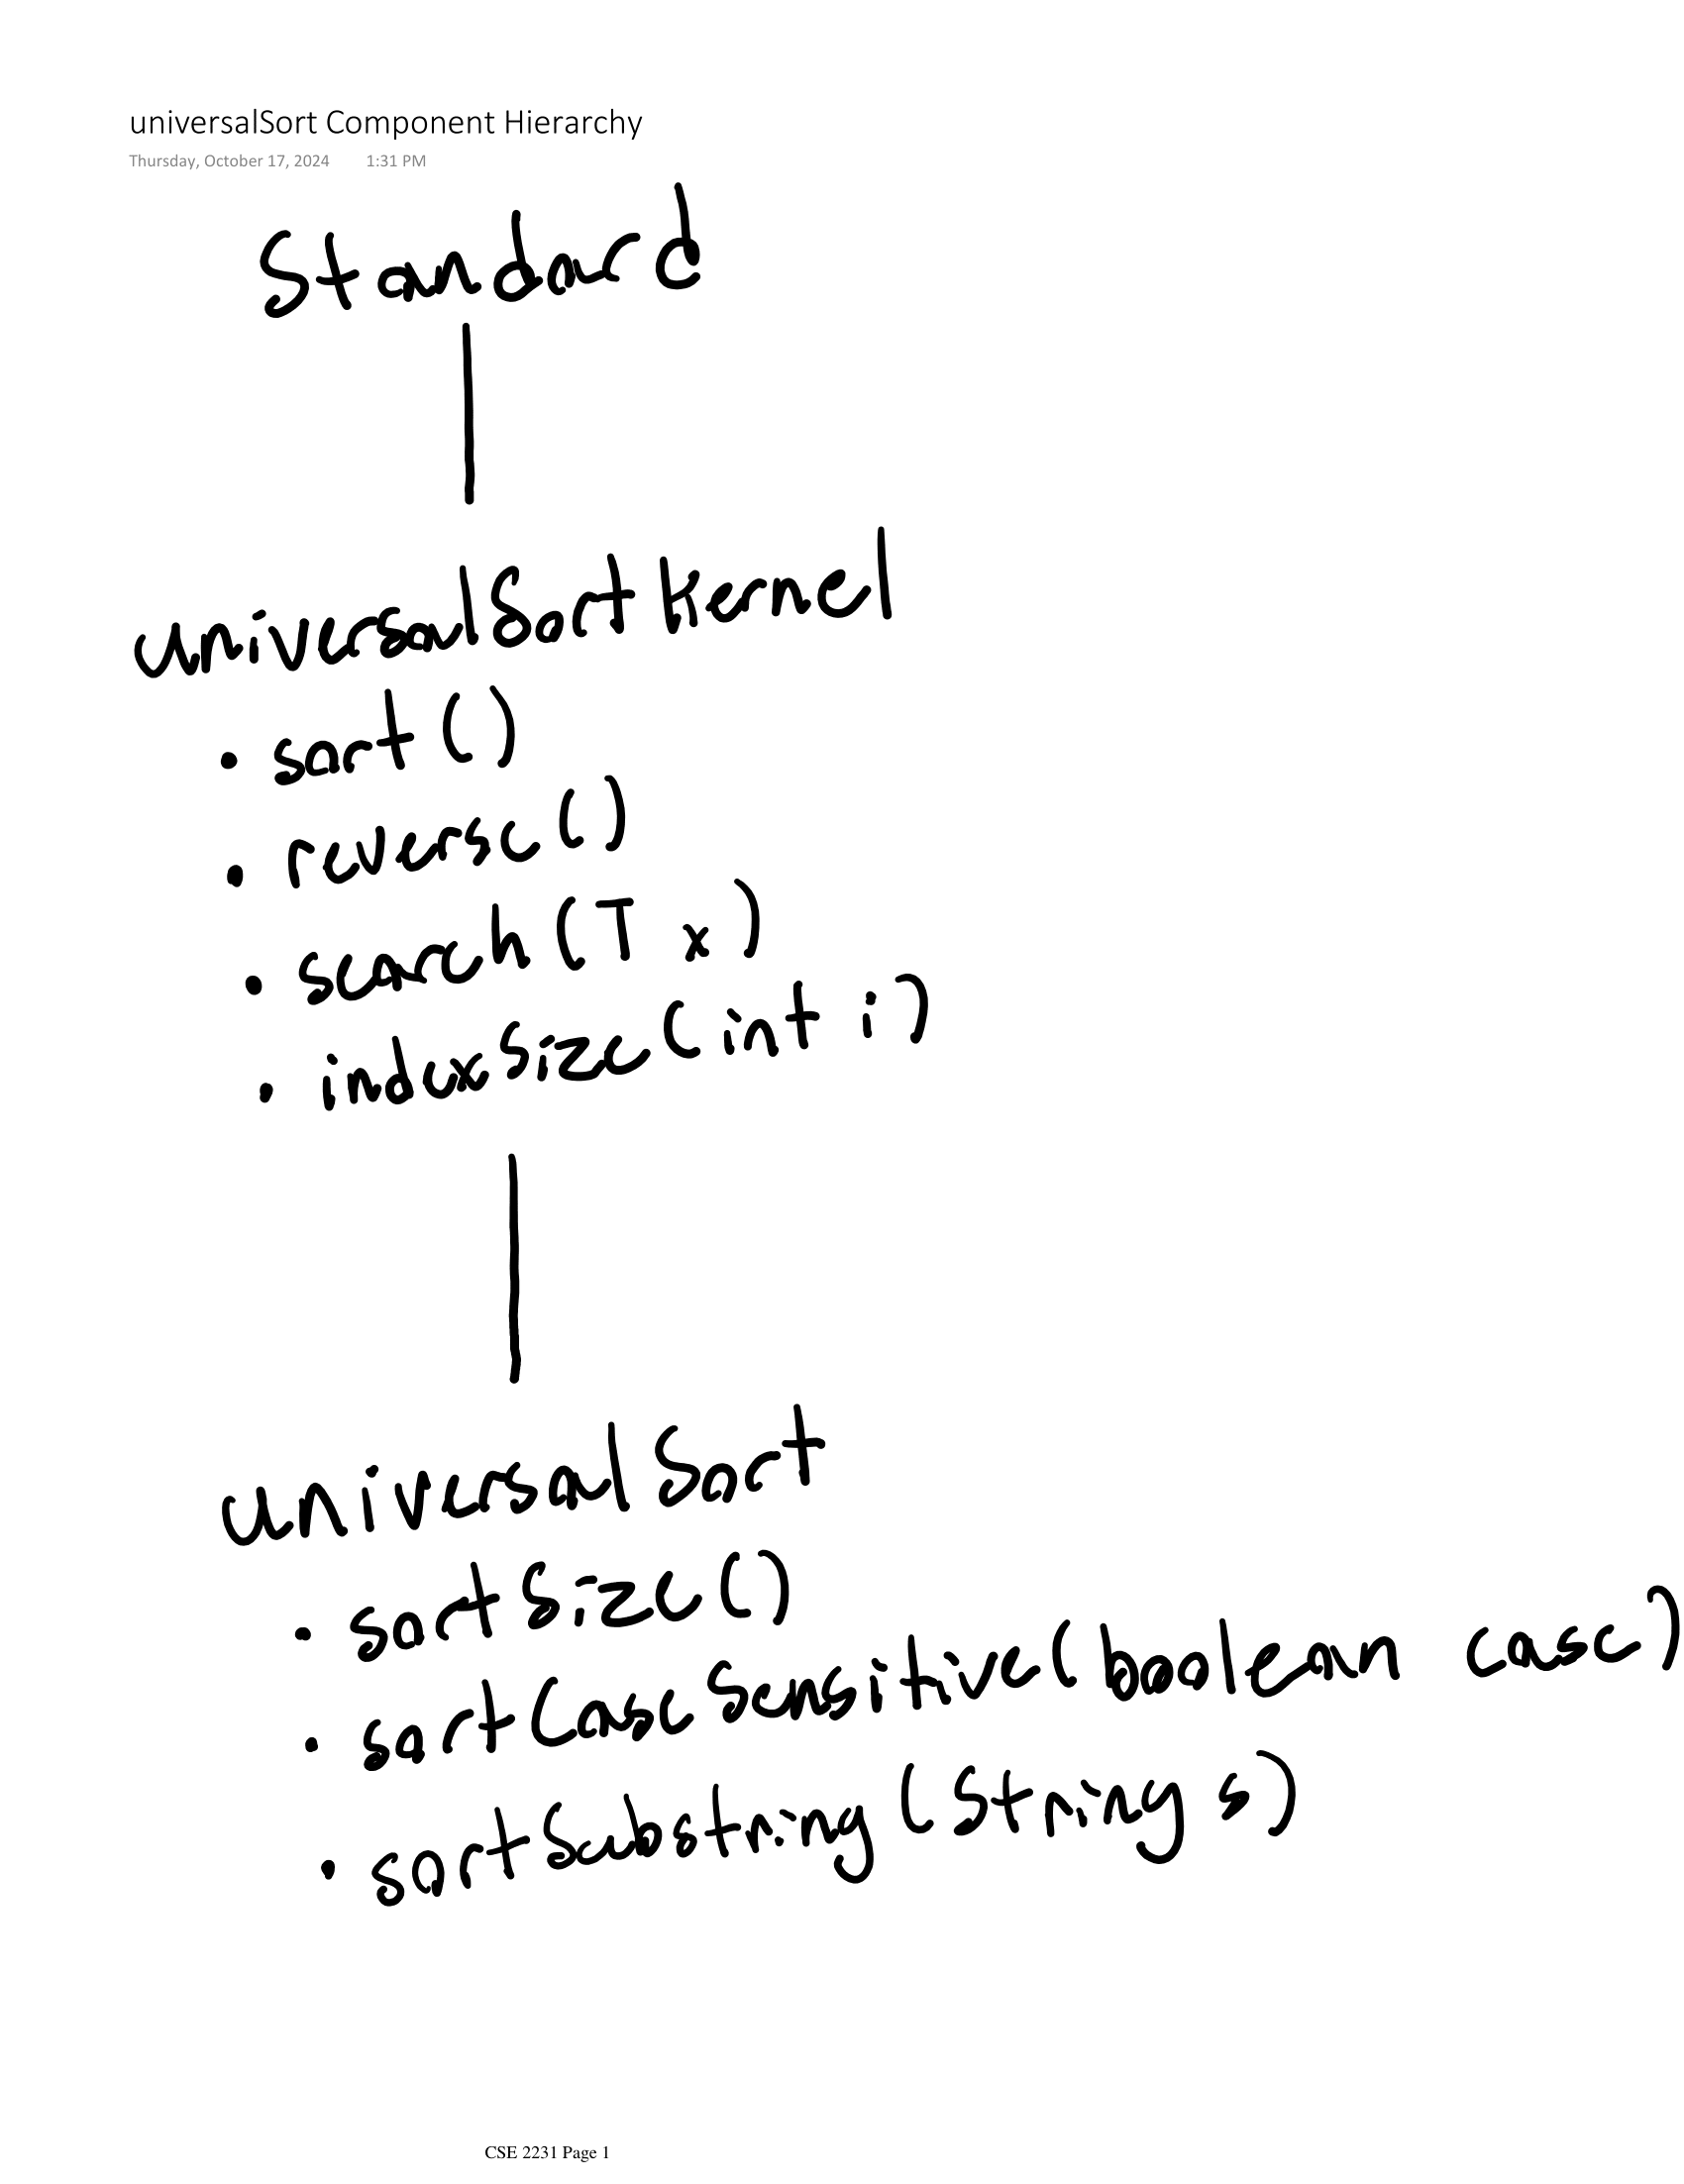 universalSort Component Hierarchy
Thursday, October 17, 2024 1:31 PM
Standard
universalSortKernel
• sort()
• reverse()
• search(T x)
• indexSize(int i)
universalSort
• sortSize()
• sortCaseSensitive(boolean case)
• sortSubstring(String s)
CSE 2231 Page 1